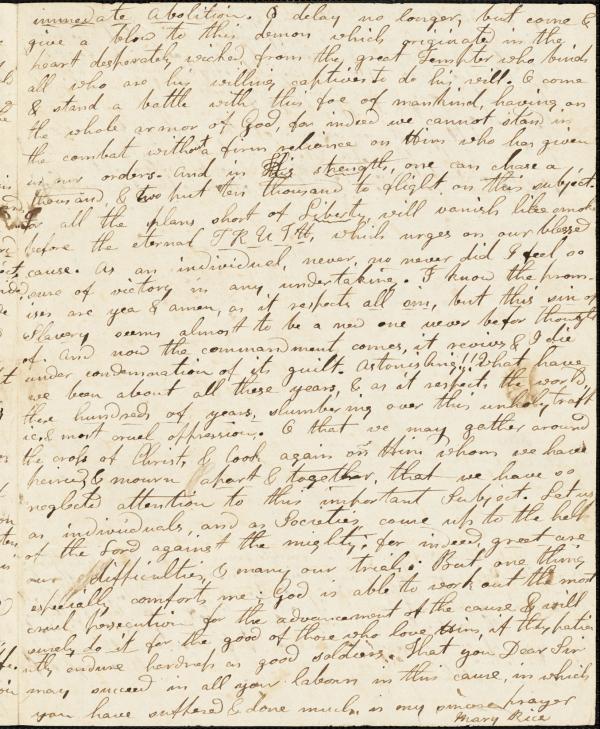 immediate abolition. O delay no longer, but come &
give a blow to this demon which originated in the
heart desperately wicked, from the great Tempter who binds
all who are his willing captives to do his will. O come
& stand a battle with this foe of mankind, having on
the whole armor of God, for indeed we cannot stand in
the combat without a firm reliance on Him who has given
us our orders. And in His strength, one can chase a
thousand, & two put ten thousand to flight, on this subject.
For all the plans short of Liberty, will vanish like smoke
before the eternal TRUTH, which urges on our blessed
cause. As an individual, never, no never did I feel so
sure of victory in any undertaking. I know the prom-
ises are yea & amen, as it respects all sin, but this sin of
Slavery seems almost to be a new one never befor thought
of. And now the commandment comes, it revives & I die
under condemnation of its guilt. Astonishing!! What have
we been about all these years, & as it respects the world,
these hundreds of years, slumbering over this unholy traff
ic, & most cruel oppression. O that we may gather around
the cross of Christ, & look again on Him whom we have
pierced & mourn apart & together, that we have so
neglected attention to this important Subject. Let us
as individuals, and as Societies come up to the help
of the Lord against the mighty, for indeed great are
our difficulties, & many our trials. But one thing
especially comforts me: God is able to work out the most
cruel persecution for the advancement of the cause & will
surely do it for the good of those who love Him, if they patie
ntly endure hardness as good soldiers. That you Dear Sir
may succeed in all your labours in this cause, in which
you have suffered & done much, is my sincere prayer
Mary Rice